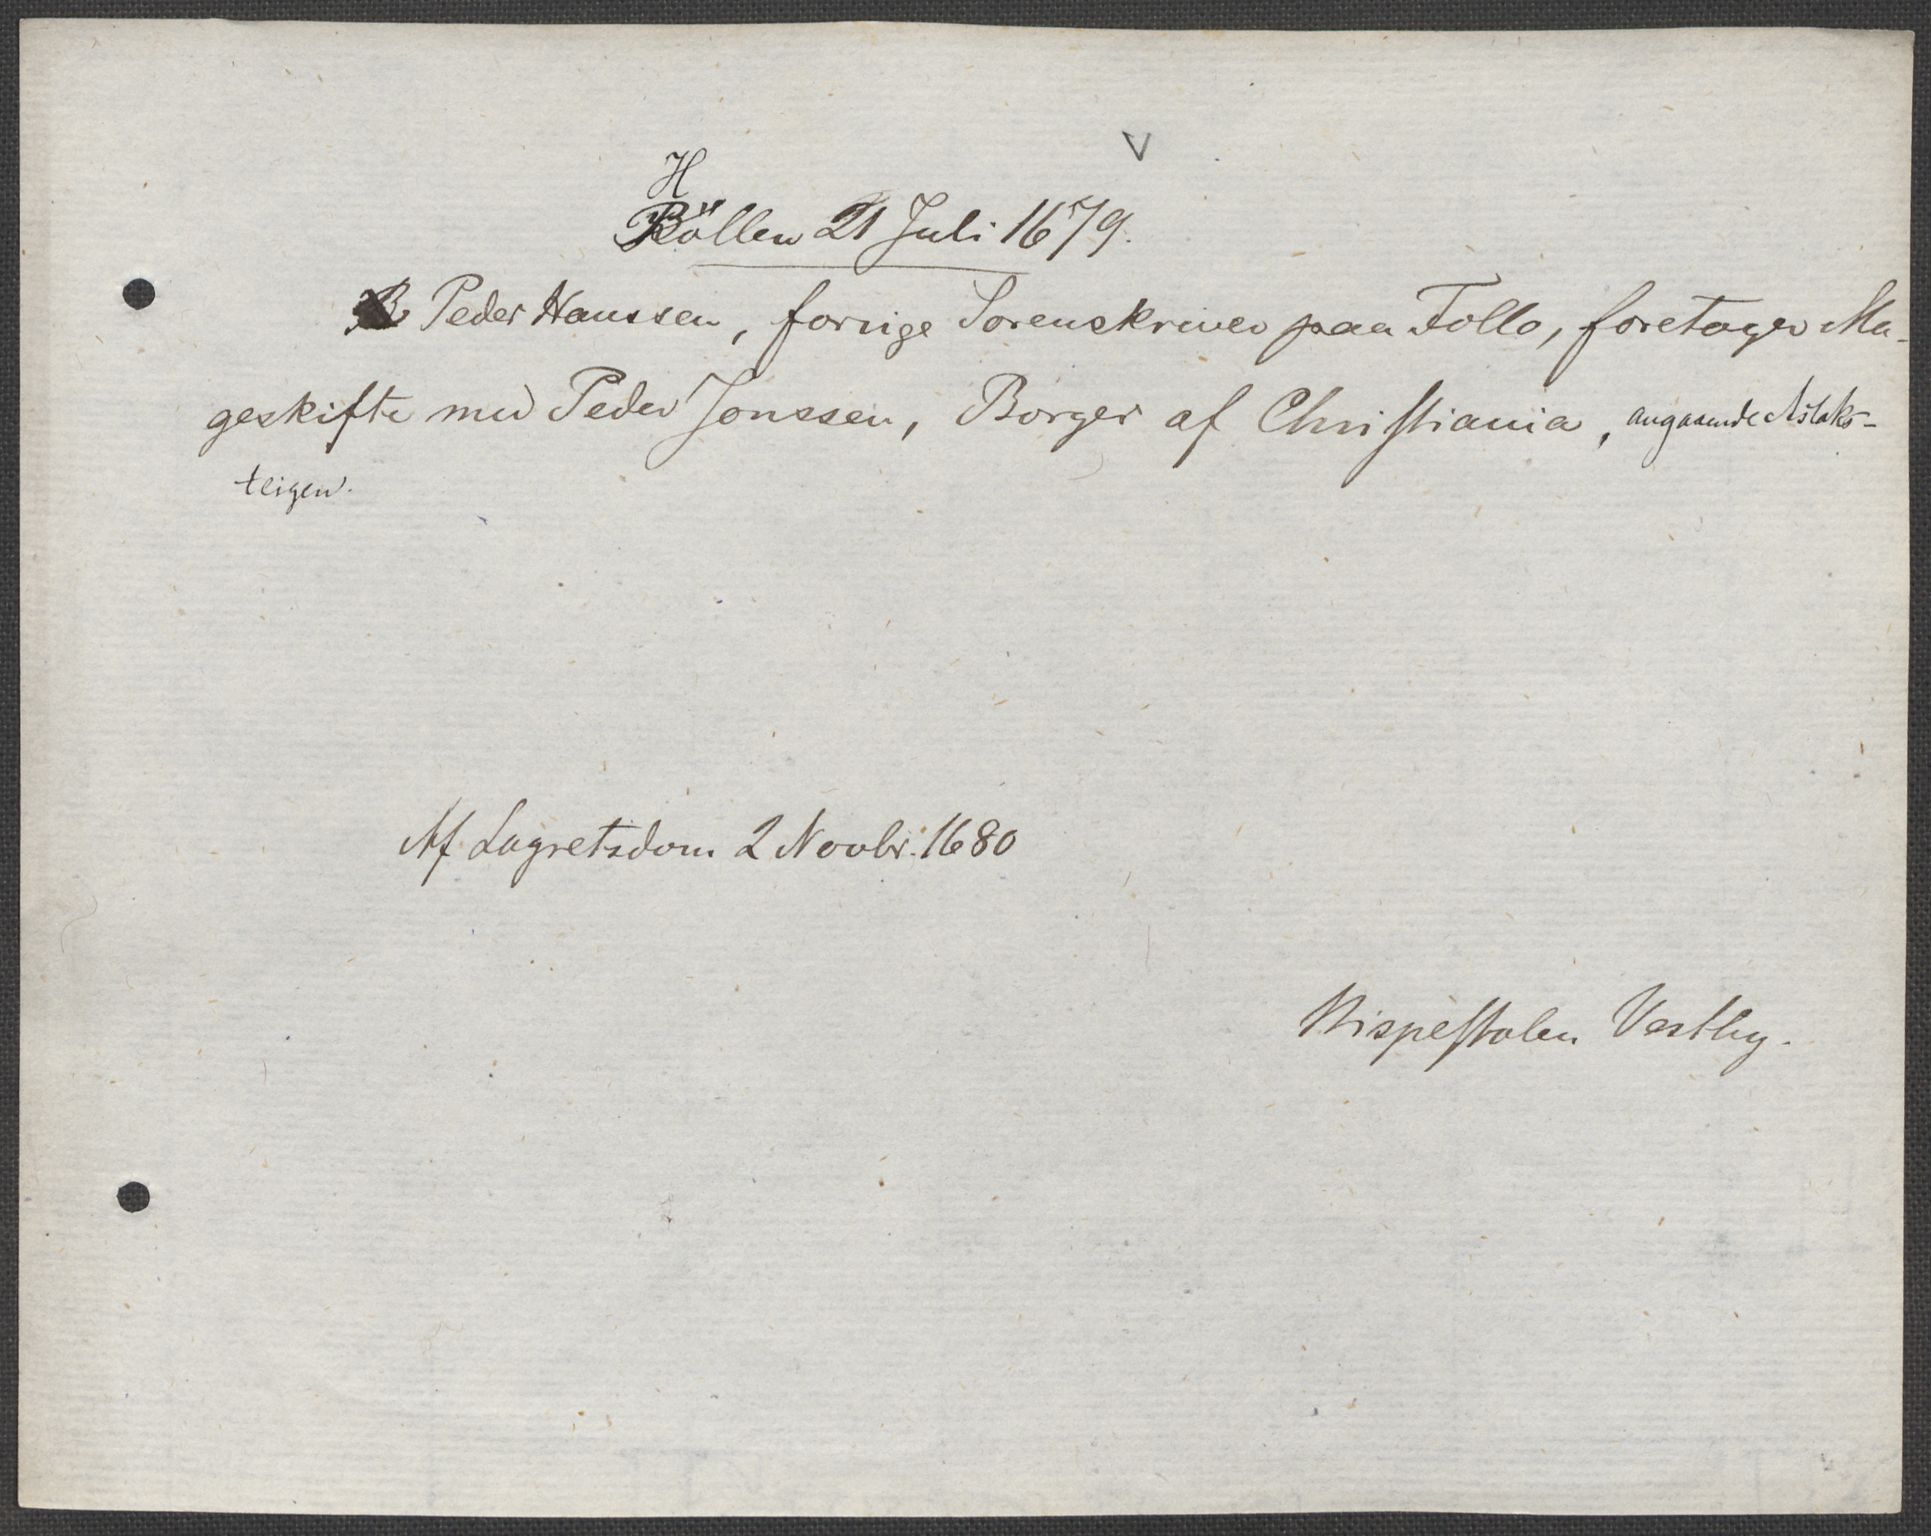 V
H
Röllen 21 Juli 1679.
Peder Hanssen, forrige Sorenskriver paa Follo, foretager Ma-
geskifte med Peder Jonssen, Borger af Christiania, angaaende Aslaks-
teigen.
Af Lagretsdom 2 Novbr. 1680
Nispestolen Vestby.